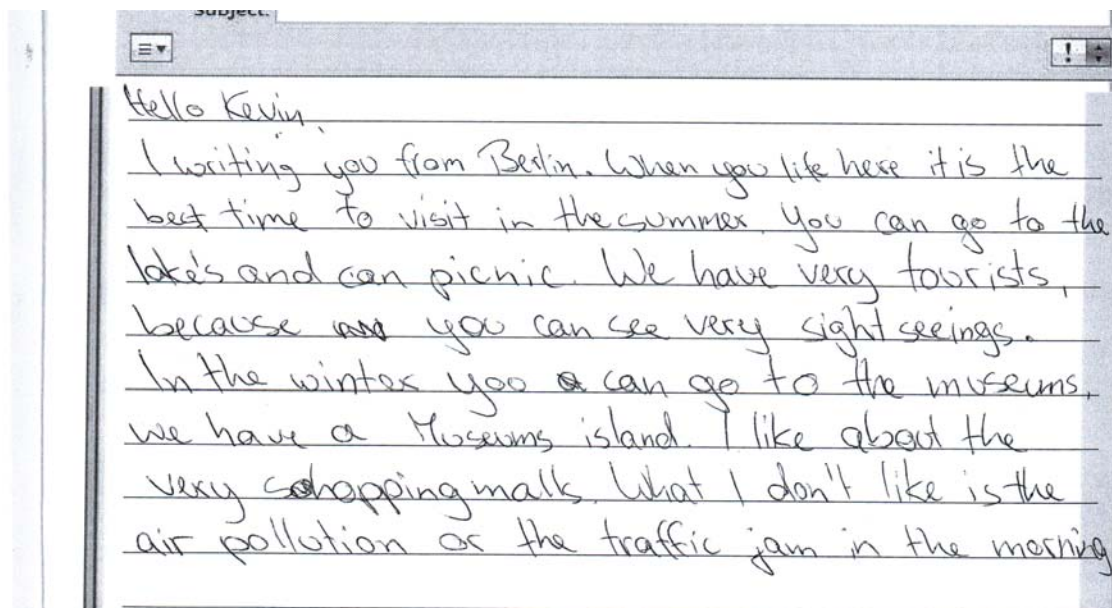 Subject:
Hello Kevin,
I writing you from Berlin. When you life here it is the
best time to visit in the summer. You can go to the
lake's and can picnic. We have very tourists,
because you can see very sight seeings.
In the winter you can go to the museums,
we have a Museums island. I like about the
very schopping malls. What I don't like is the
air pollution or the traffic jam in the morning